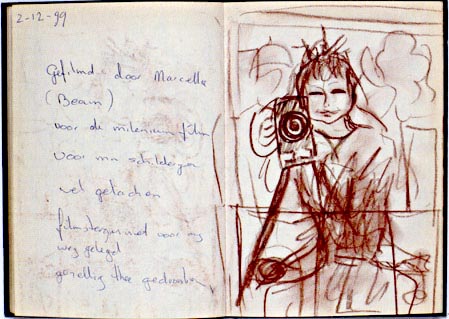 2-12-99
Gefilmd door Marcella
(Beam)
voor de milenium film
voor m'n schilderijen
vel gelachen
voor mij
weg gelegd
gezellig thee gedronken